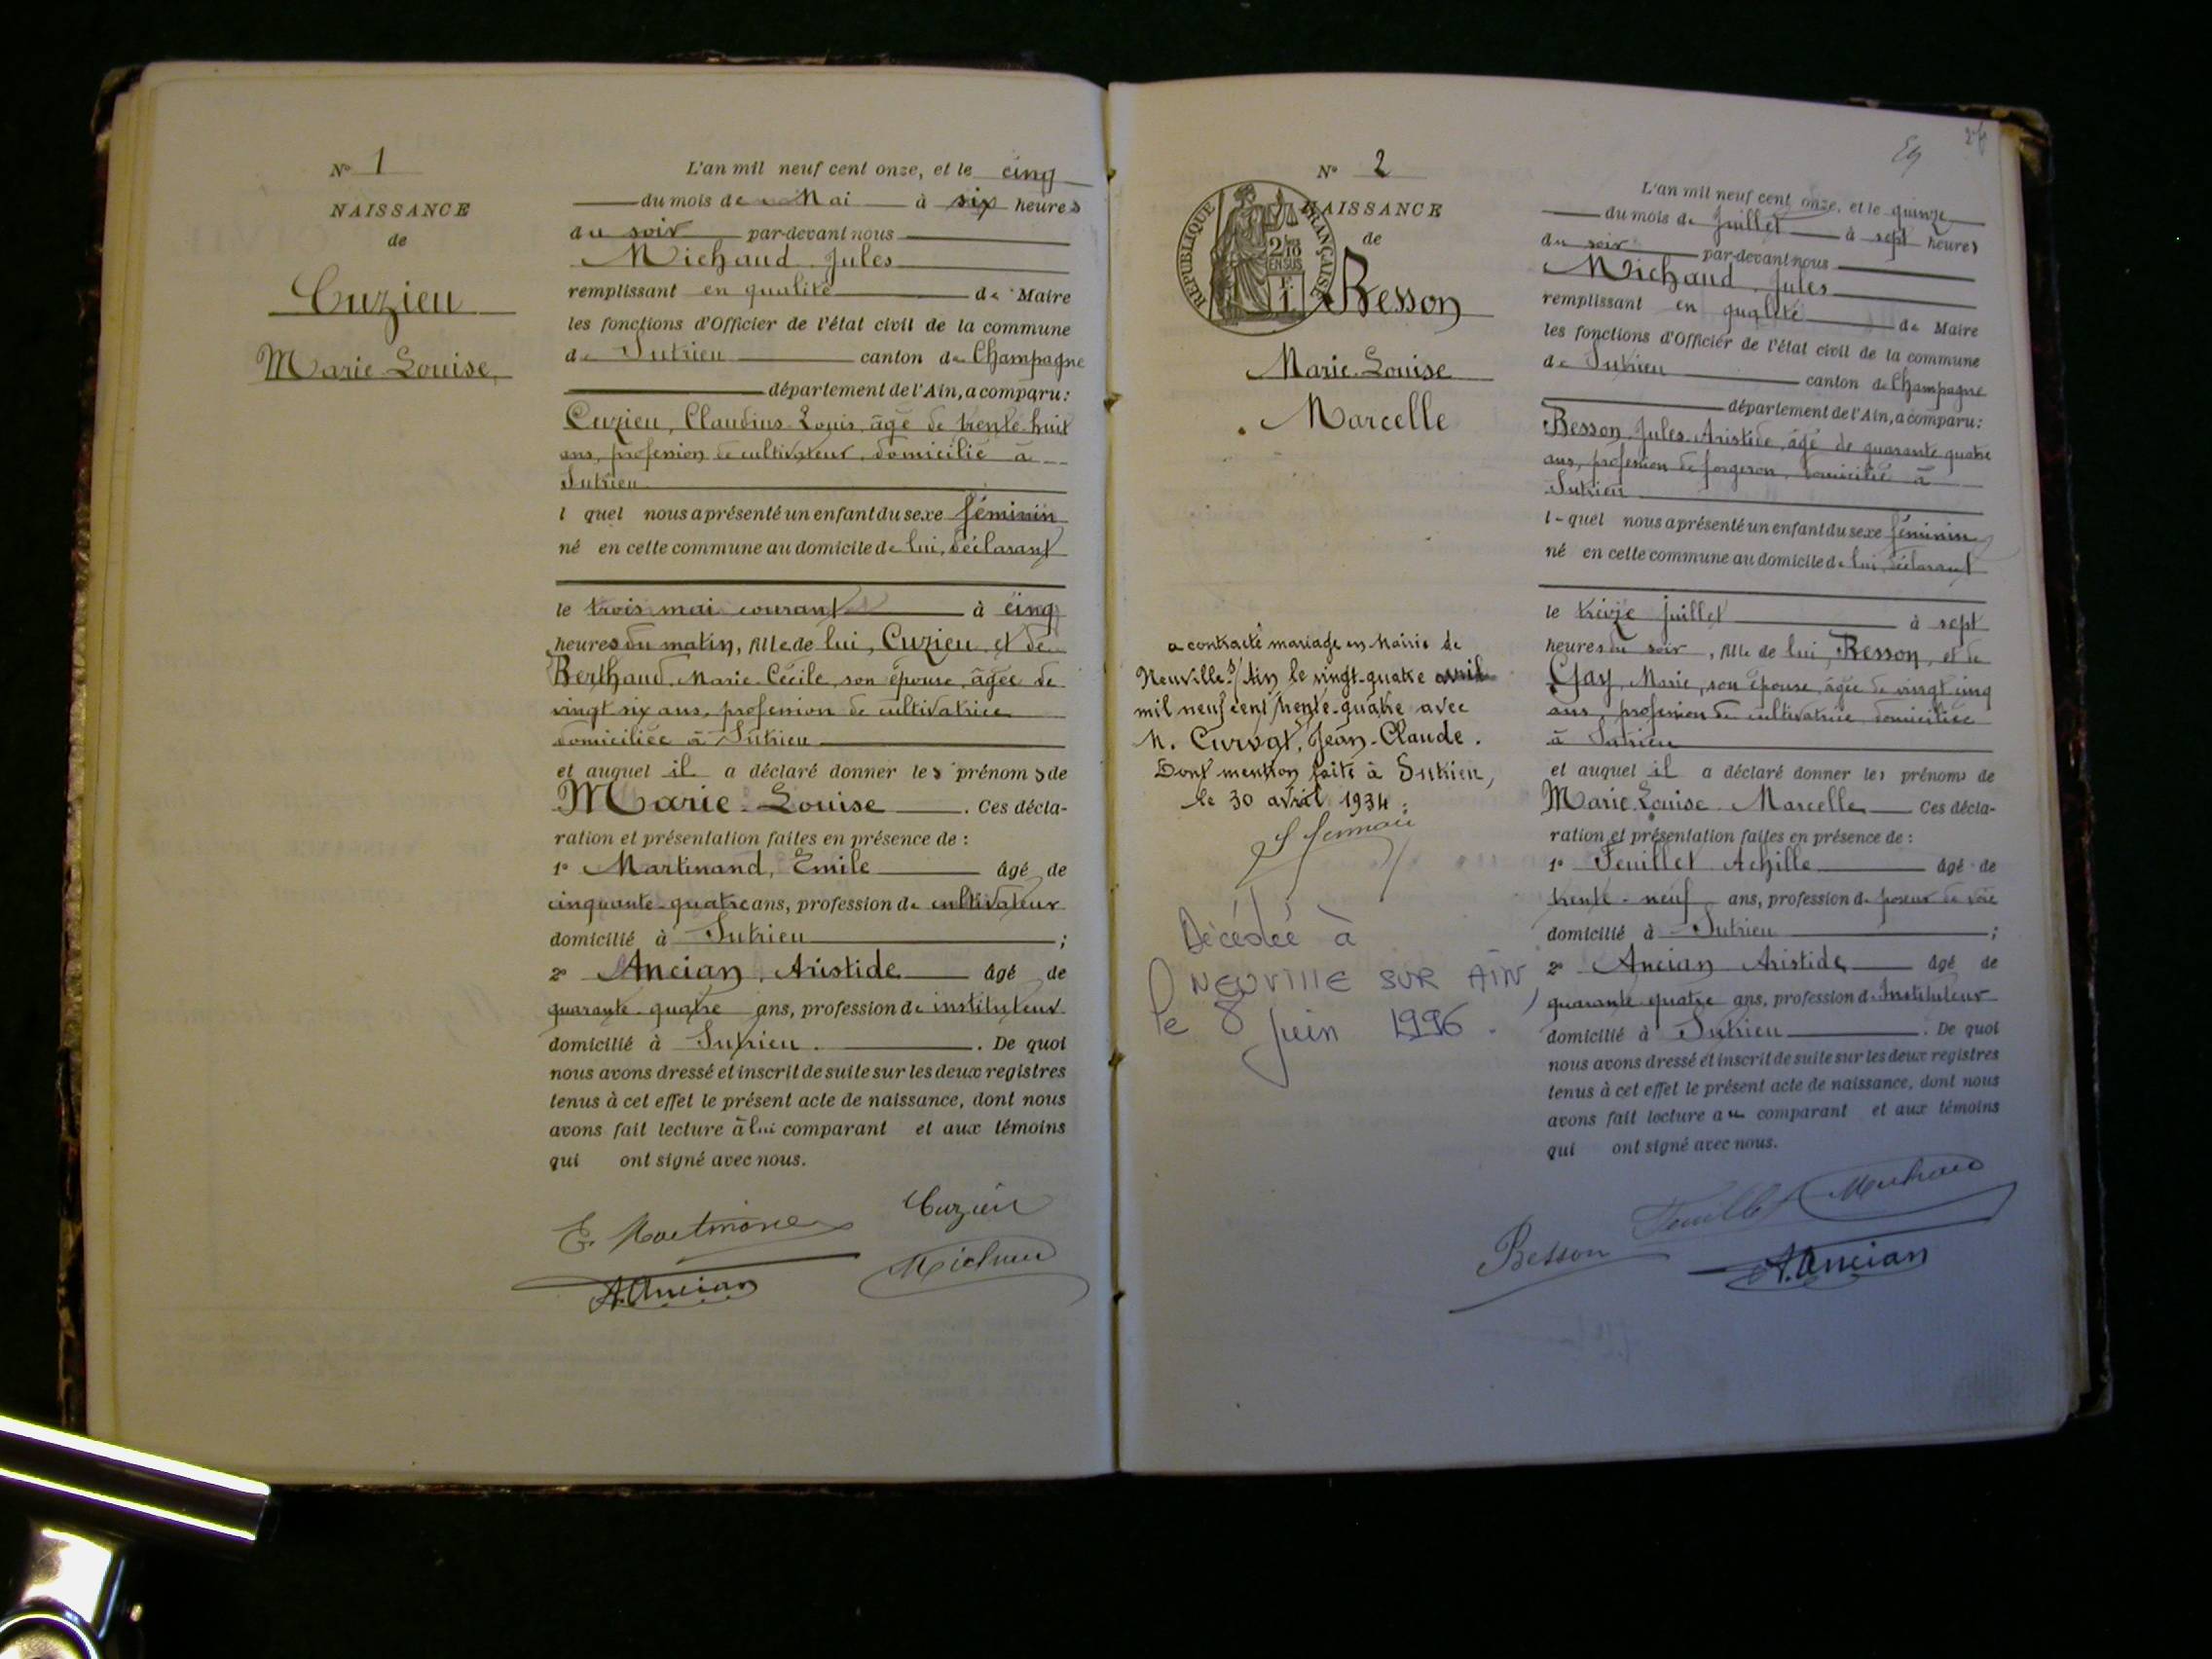 N° 1
NAISSANCE
de
Cuzieu
Marie-Louise
L'an mil neuf cent onze, et le cinq
du mois de Mai à six heures
du soir par-devant nous
Michaud, Jules
remplissant en qualité de Maire
les fonctions d'Officier de l'état civil de la commune
de Sutrieu canton de Champagne
département de l'Ain, a comparu:
Cuzieu, Claudius Louis, âgé de trente huit
ans, profession de cultivateur, domicilié à
Sutrieu
l quel nous a présenté un enfant du sexe féminin
né en cette commune au domicile de lui, déclarant
le trois mai courant à cinq
heures du matin, fille de lui, Cuzieu et de
Berthaud, Marie-Cécile, son épouse, âgée de
vingt six ans, profession de cultivatrice
domiciliée à Sutrieu
et auquel il a déclaré donner les prénoms de
Marie-Louise. Ces décla-
ration et présentation faites en présence de :
1° Martinand, Emile âgé de
cinquante-quatre ans, profession de cultivateur
domicilié à Sutrieu ;
2° Ancian, Aristide âgé de
quarante-quatre ans, profession de instituteur
domicilié à Sutrieu. De quoi
nous avons dressé et inscrit de suite sur les deux registres
tenus à cet effet le présent acte de naissance, dont nous
avons fait lecture à lui comparant et aux témoins
qui ont signé avec nous.
Cuzieu
Michaud
A. Ancian
N° 2
NAISSANCE
de
REPUBLIQUE FRANÇAISE
2/10
EN SUS
Besson
Marie-Louise
Marcelle
a contracté mariage en Mairie de
Neuville s/Ain le vingt-quatre avril
mil neuf cent trente-quatre avec
M. Curvat, Jean-Claude.
Dont mention faite à Sutrieu,
le 30 avril 1934 :
Décédée à
NEUVILLE SUR AIN,
le 8 juin 1996.
L'an mil neuf cent onze, et le quinze
du mois de Juillet à sept heures
du soir par-devant nous
Michaud, Jules
remplissant en qualité de Maire
les fonctions d'Officier de l'état civil de la commune
de Sutrieu canton de Champagne
département de l'Ain, a comparu:
Besson, Jules Aristide, âgé de quarante quatre
ans, profession de forgeron, domicilié à
Sutrieu
l-quel nous a présenté un enfant du sexe féminin
né en cette commune au domicile de lui, déclarant
le treize juillet à sept
heures du soir, fille de lui, Besson, et de
Gay, Marie, son épouse, âgée de vingt cinq
ans, profession de cultivatrice domiciliée
à Sutrieu
et auquel il a déclaré donner les prénoms de
Marie-Louise Marcelle Ces décla-
ration et présentation faites en présence de :
1° Feuillet Achille âgé de
trente-neuf ans, profession de poseur de voie
domicilié à Sutrieu ;
2° Ancian Aristide âgé de
quarante quatre ans, profession d'Instituteur
domicilié à Sutrieu. De quoi
nous avons dressé et inscrit de suite sur les deux registres
tenus à cet effet le présent acte de naissance, dont nous
avons fait lecture au comparant et aux témoins
qui ont signé avec nous.
Feuillet Michaud
Besson
A. Ancian